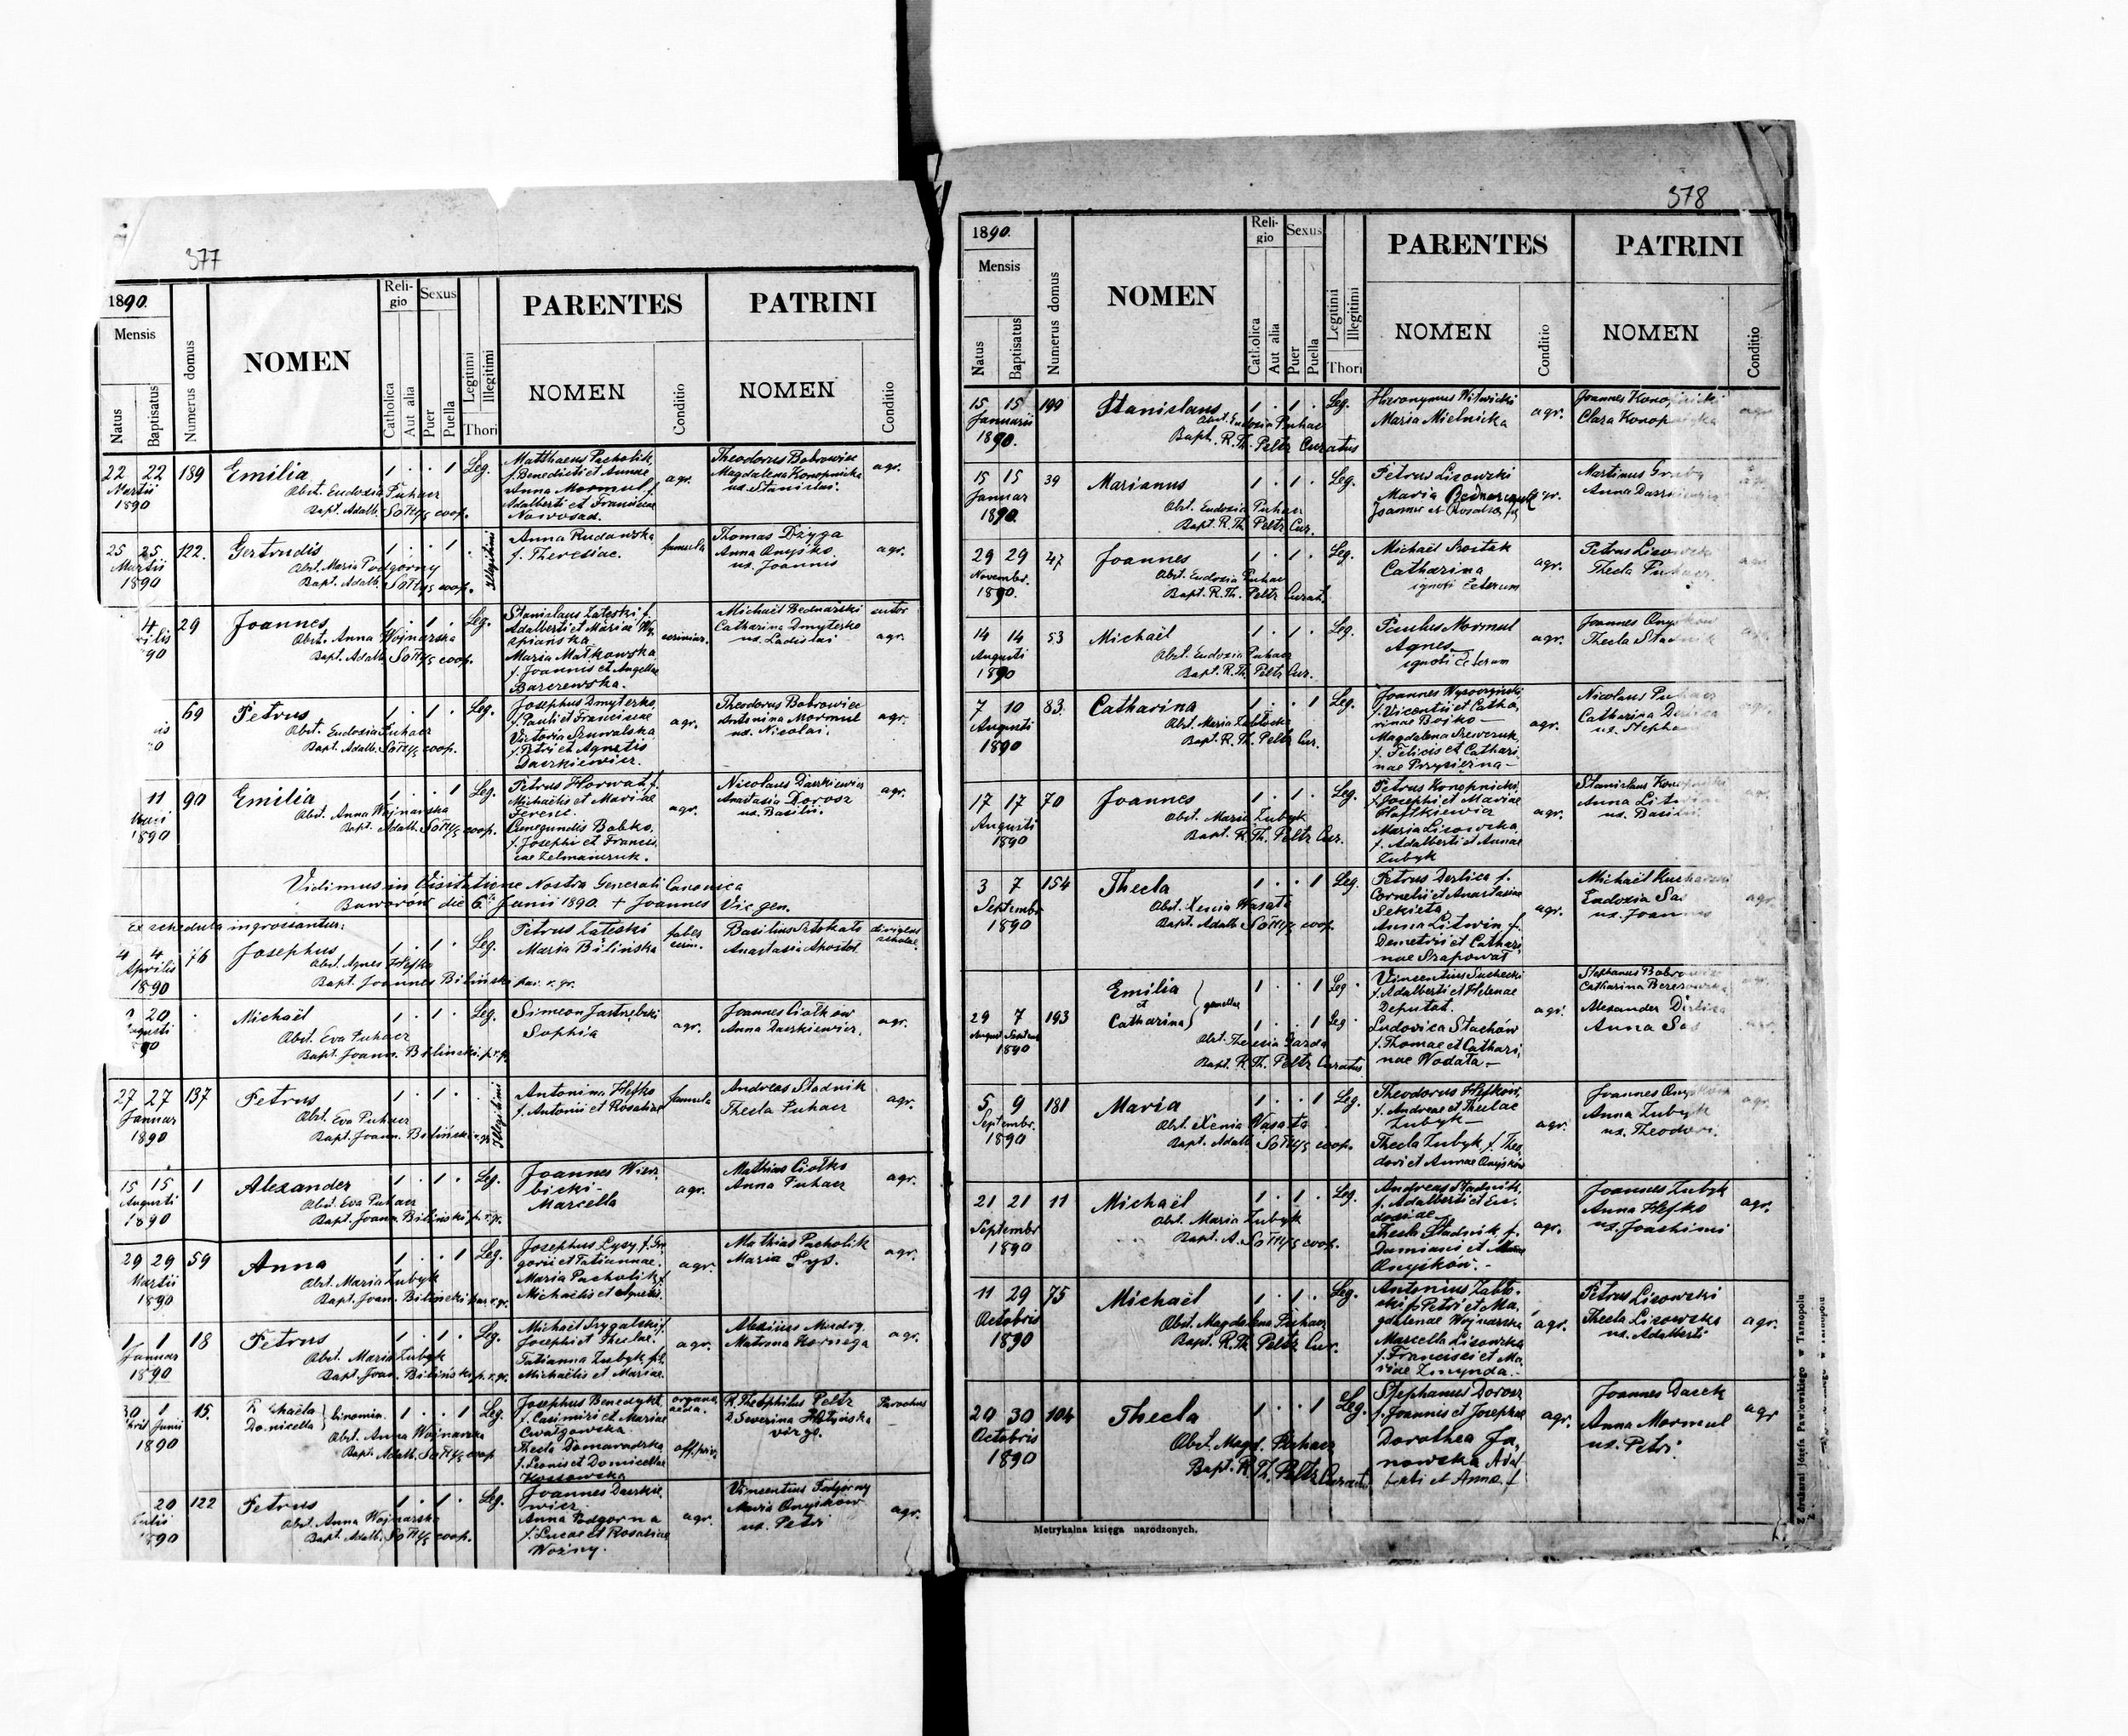 377
1890.
Mensis
Natus
Baptisatus
Numerus domus
NOMEN
Religio
Catholica
Aut alia
Sexus
Puer
Puella
Legitimi
Illegitimi
Thori
PARENTES
NOMEN
Conditio
PATRINI
NOMEN
Conditio
22 22 189 Emilia 1 . . 1 Leg.
Martii
1890
Obst. Eudoxia Puhacz
Bapt. Adalb. Sołtys coop.
Matthaeus Pacholik
f. Benedicti et Annae
Anna Mormul f.
Adalberti et Franciscae
Nowosad.
agr.
Theodorus Bobrowicz
Magdalena Konopnicka
ux. Stanislai.
agr.
25 25 122. Gertrudis 1 . . 1 Illegitimi
Martii
1890
Obst. Maria Podgorny
Bapt. Adalb. Sołtys coop.
Anna Rudawska
f. Theresiae.
famula
Thomas Dżyga
Anna Onyśko
ux. Joannis
agr.
4 29 Joannes 1 . 1 . Leg.
Obst. Anna Wojnarska
Bapt. Adalb. Sołtys coop.
Stanislaus Zateski f.
Adalberti et Mariae
Maria Małkowska
f. Joannis et Angellae
Barzewska.
Michaël Bednarski
Catharina Dmyterko
ux. Ladislai
sutor
agr.
69 Petrus 1 . 1 . Leg.
Obst. Eudoxia Puhacz
Bapt. Adalb. Sołtys coop.
Josephus Dmyterko,
f. Pauli et Franciscae
Victoria Szuwalska
f. Petri et Agnetis
Daszkiewicz.
agr.
Theodorus Bobrowicz
Antonina Mormul
ux. Nicolai.
agr.
11 90 Emilia 1 . . 1 Leg.
1890
Obst. Anna Wojnarska
Bapt. Adalb. Sołtys coop.
Petrus Horwat f.
Michaëlis et Mariae
Ferenc.
Cunegundis Bobko,
f. Josephi et Francis
cae Zelmanczuk.
agr.
Nicolaus Daszkiewicz
Anastasia Dorosz
ux. Basilii.
agr.
Vidimus in Visitatione Nostra Generali Canonica
Baworów die 6 Junii 1890. + Joannes Vic. gen.
Ex schedula ingrossantur:
4 4 76 Josephus 1 . 1 . Leg.
Aprilis
1890
Obst. Agnes Hefko
Bapt. Joannes Biliński par. r. gr.
Petrus Zateski
Maria Bilińska
faber
Basilius Sztokało
Anastasia Apostoł
dirigens
scholae.
20 Michaël 1 . 1 . Leg.
Obst. Eva Puhacz
Bapt. Joann. Biliński p. r. gr.
Simeon Jastrzębski
Sophia
agr.
Joannes Ciołkow
Anna Daszkiewicz.
agr.
27 27 137 Petrus 1 . 1 . Illegitimi
Januar
1890
Obst. Eva Puhacz
Bapt. Joann. Biliński r. gr.
Antonina Hefko
f. Antonii et Rosaliae
famula
Andreas Stadnik
Thecla Puhacz
agr.
15 15 1 Alexander 1 . 1 . Leg.
Augusti
1890
Obst. Eva Puhacz
Bapt. Joann. Biliński p. r. gr.
Joannes Wierz
bicki -
Marcella
agr.
Mathias Ciołko
Anna Puhacz
agr.
29 29 59 Anna 1 . . 1 Leg.
Martii
1890
Obst. Maria Zubyk
Bapt. Joan. Biliński par. r. gr.
Josephus Łysy f. Gre
gorii et Tatiannae.
Maria Pacholik f.
Michaëlis et Agnetis.
agr.
Mathias Pacholik
Maria Łys.
agr.
1 1 18 Petrus 1 . 1 . Leg.
Januar
1890
Obst. Maria Zubyk
Bapt. Joan. Biliński p. r. gr.
Josephi et Theclae.
Tatianna Zubyk f.
Michaëlis et Mariae.
agr.
agr.
30 1 15. Domicella binomia. 1 . . 1 Leg.
Junii
1890
Obst. Anna Wojnarska
Bapt. Adalb. Sołtys coop
Josephus Benedykt
f. Casimiri et Mariae
Thecla Domaradzka,
f. Leonis et Domicellae
Kossowska
R. Theophilus Peltz
Severina
virgo.
Parochus
20 122 Petrus 1 . 1 . Leg.
Obst. Anna Wojnarska
Bapt. Adalb. Sołtys coop.
Joannes Daszkie
wicz.
Anna Podgorna
f. Lucae et Rosaliae
Woźny.
agr.
Vincentius Podgórny
Maria Onyśkow
ux. Petri
agr.
378
1890.
Mensis
Natus
Baptisatus
Numerus domus
NOMEN
Religio
Catholica
Aut alia
Sexus
Puer
Puella
Legitimi
Illegitimi
Thori
PARENTES
NOMEN
Conditio
PATRINI
NOMEN
Conditio
15 15 199 Stanislaus 1 . 1 . Leg.
Januarii
1890.
Obst. Eudoxia Puhacz
Bapt. R. Th. Peltz Curatus
Hieronymus Witwicki
Maria Mielnicka
agr.
Joannes Konopnicki
Clara Konopnicka
agr
15 15 39 Marianus 1 . 1 . Leg.
Januar
1890.
Obst. Eudoxia Puhacz
Bapt. R. Th. Peltz Cur.
Petrus Lisowski
Maria Bednarczuk
agr.
Martinus
Anna
29 29 47 Joannes 1 . 1 . Leg.
Novembr.
1890.
Obst. Eudoxia Puhacz
Bapt. R. Th. Peltz Curat.
Michaël Szostak
Catharina
ignoti ceterum
agr.
Petrus Lisowski
Thecla Puhacz.
14 14 53 Michaël 1 . 1 . Leg.
Augusti
1890
Obst. Eudoxia Puhacz
Bapt. R. Th. Peltz Cur.
Paulus Mormul
Agnes
ignoti ceterum
agr.
Joannes Onyśkow
Thecla Stadnik
7 10 83. Catharina 1 . . 1 Leg.
Augusti
1890
Obst. Maria Zabłocka
Bapt. R. Th. Peltz Cur.
Joannes Wysoczyński,
f. Vicentii et Catha,
rinae Bojko -
Magdalena Szewczuk,
f. Felicis et Cathari
nae Przysiężna -
agr.
Nicolaus Puhacz
Catharina Derlica
ux. Stephani
17 17 70 Joannes 1 . 1 . Leg.
Augusti
1890
Obst. Maria Zubyk
Bapt. R. Th. Peltz Cur.
Petrus Konopnicki,
f. Josephi et Mariae
Haftkiewicz
Maria Lisowska,
f. Adalberti et Annae
Zubyk
agr.
Stanislaus Konopnicki
Anna Litwin
ux. Basilii
3 7 154 Thecla 1 . . 1 Leg.
Septembr
1890
Obst. Xenia Wasata
Bapt. Adalb. Sołtys coop.
Petrus Derlica f.
Cornelii et Anastasiae
Sekieta
Anna Litwin f.
Demetrii et Cathari
nae Szapował
agr.
Michaël
Eudoxia Sas
ux. Joannis
agr
29 7 193 Emilia 1 . . 1 Leg.
et gemellae
Catharina 1 . . 1 Leg.
1890
Obst. Theresia Garda
Bapt. R. Th. Peltz Curatus
Vincentius Suchecki
f. Adalberti et Helenae
Deputat.
Ludovica Stachów
f. Thomae et Cathari,
nae Wodata -
agr.
Stephanus Bobrowicz
Catharina Berezowska
Alexander Derlica
Anna Sas
5 9 181 Maria 1 . . 1 Leg.
Septembr.
1890
Obst. Xenia Wasata
Bapt. Adalb. Sołtys coop.
Theodorus Hefków,
f. Andreae et Theclae
Zubyk -
Thecla Zubyk f. Theo
dori et Annae Onyśków
agr.
Joannes Onyśkow
Anna Zubyk
ux. Theodori.
agr.
21 21 11 Michaël 1 . 1 . Leg.
Septembr
1890
Obst. Maria Zubyk
Bapt. A. Sołtys coop.
Andreas Stadnik,
f. Adalberti et Eu,
doxiae -
Thecla Stadnik f.
Damiani et
Onyśków. -
agr.
Joannes Zubyk
Anna Hefko
ux. Joachimi
agr.
11 29 75 Michaël 1 . 1 . Leg.
Octobris
1890
Obst. Magdalena Puhacz
Bapt. R. Th. Peltz Cur.
Antonius Zabło-
cki f. Petri et Ma,
gdalenae Wojnarska
Marcella Lisowska
f. Francisci et Ma,
riae Zmynda. -
agr.
Petrus Lisowski
Thecla Lisowska
ux. Adalberti
agr.
20 30 104 Thecla 1 . . 1 Leg.
Octobris
1890
Obst. Magd. Puhacz
Bapt. R. Th. Peltz Curatus
Stephanus Dorosz
f. Joannis et Josephae
Dorothea Ja,
nowska Adal
berti et Annae f.
agr.
Joannes Dacek
Anna Mormul
ux. Petri
agr
Metrykalna księga narodzonych.
Z drukarni Józefa Pawłowskiego w Tarnopolu